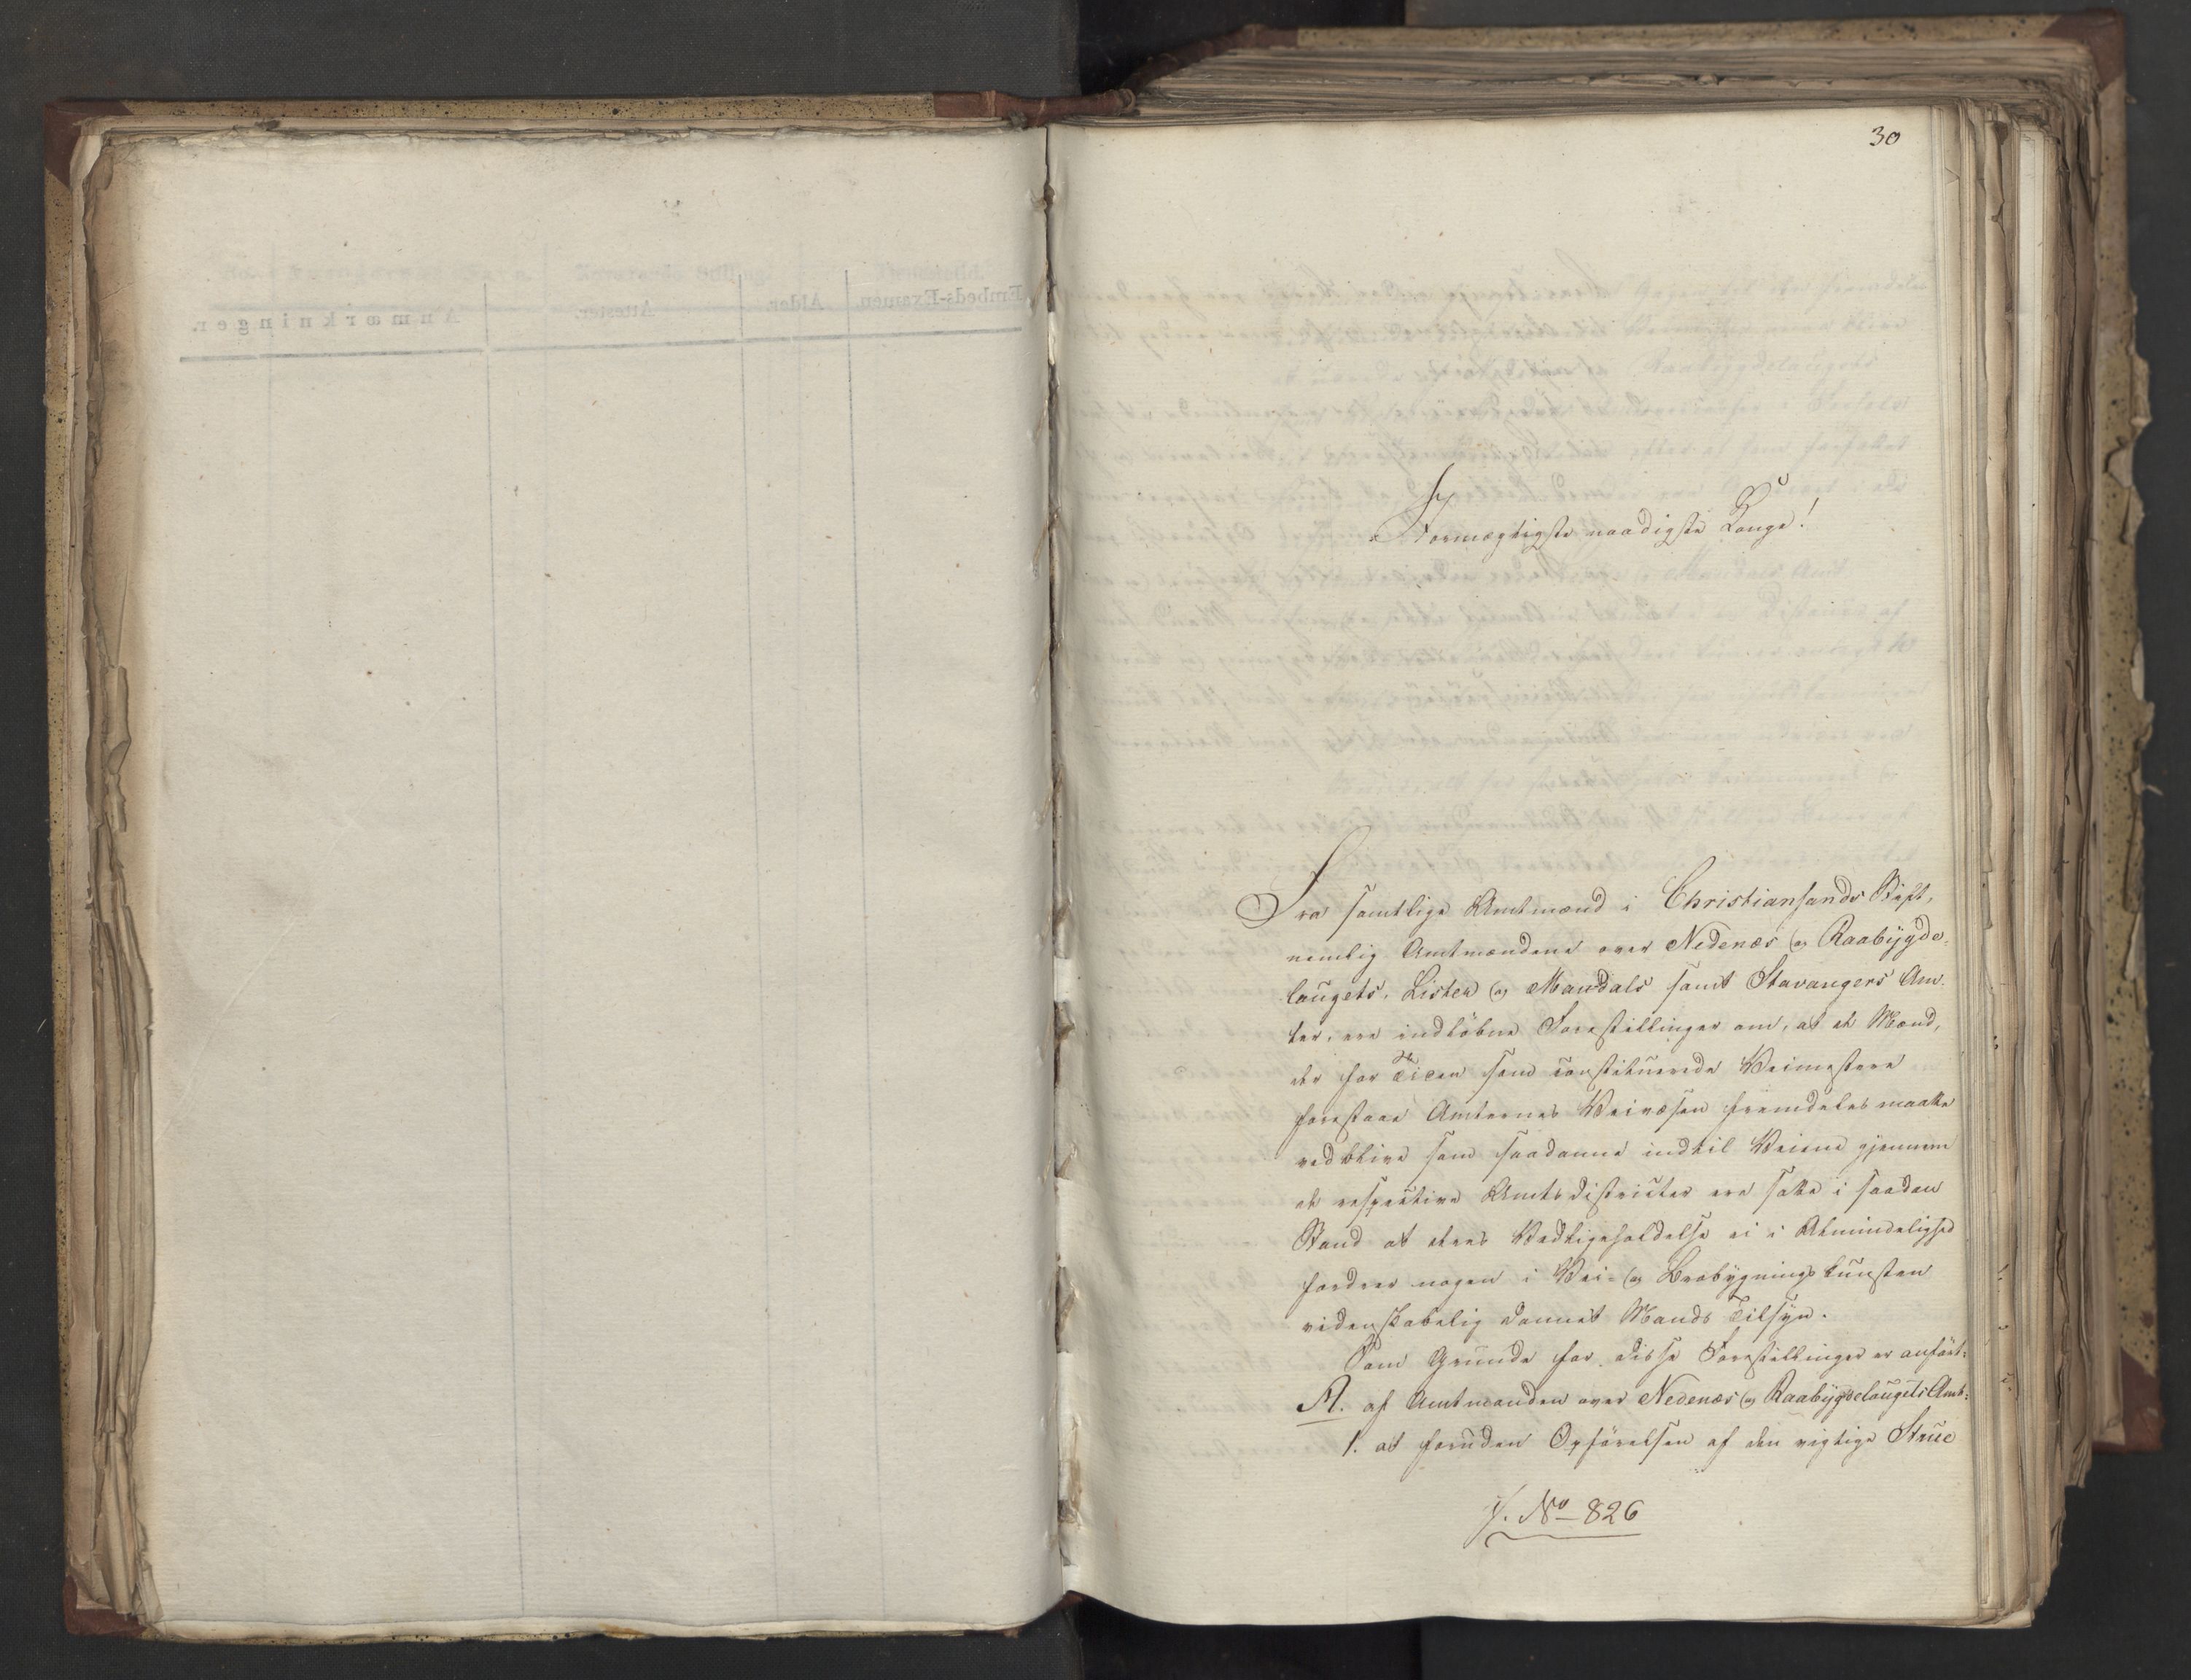 30
Stormægtigste naadigste Konge!
Fra samtlige Amtmænd i Christiansands Stift,
nemlig Amtmændene over Nedenæs og Raabÿgde-
laugets, Lister og Mandals samt Stavangers Am-
ter, ere indløbne Forestillinger om, at de Mænd,
der for Tiden som constituerede Veimestere
forestaae Amternes Veivæsen fremdeles maatte
vedblive som saadanne indtil Veiene gjennem
de respective Amtsdistricter ere satte i saadan
Stand at deres Vedligeholdelse ei i Almindelighed
fordrer nogen i Vei- og Brobÿgningskunsten
videnskabelig dannet Mands Tilsÿn.
Som Grunde for disse Forestillinger er anført:
A. af Amtmanden over Nedenæs og Raabÿgdelaugets Amt:
1. at foruden Opførelsen af den vigtige Strue
J. No 826
Anmærkninger.
Attester.
Alder.
Embeds-Examen.